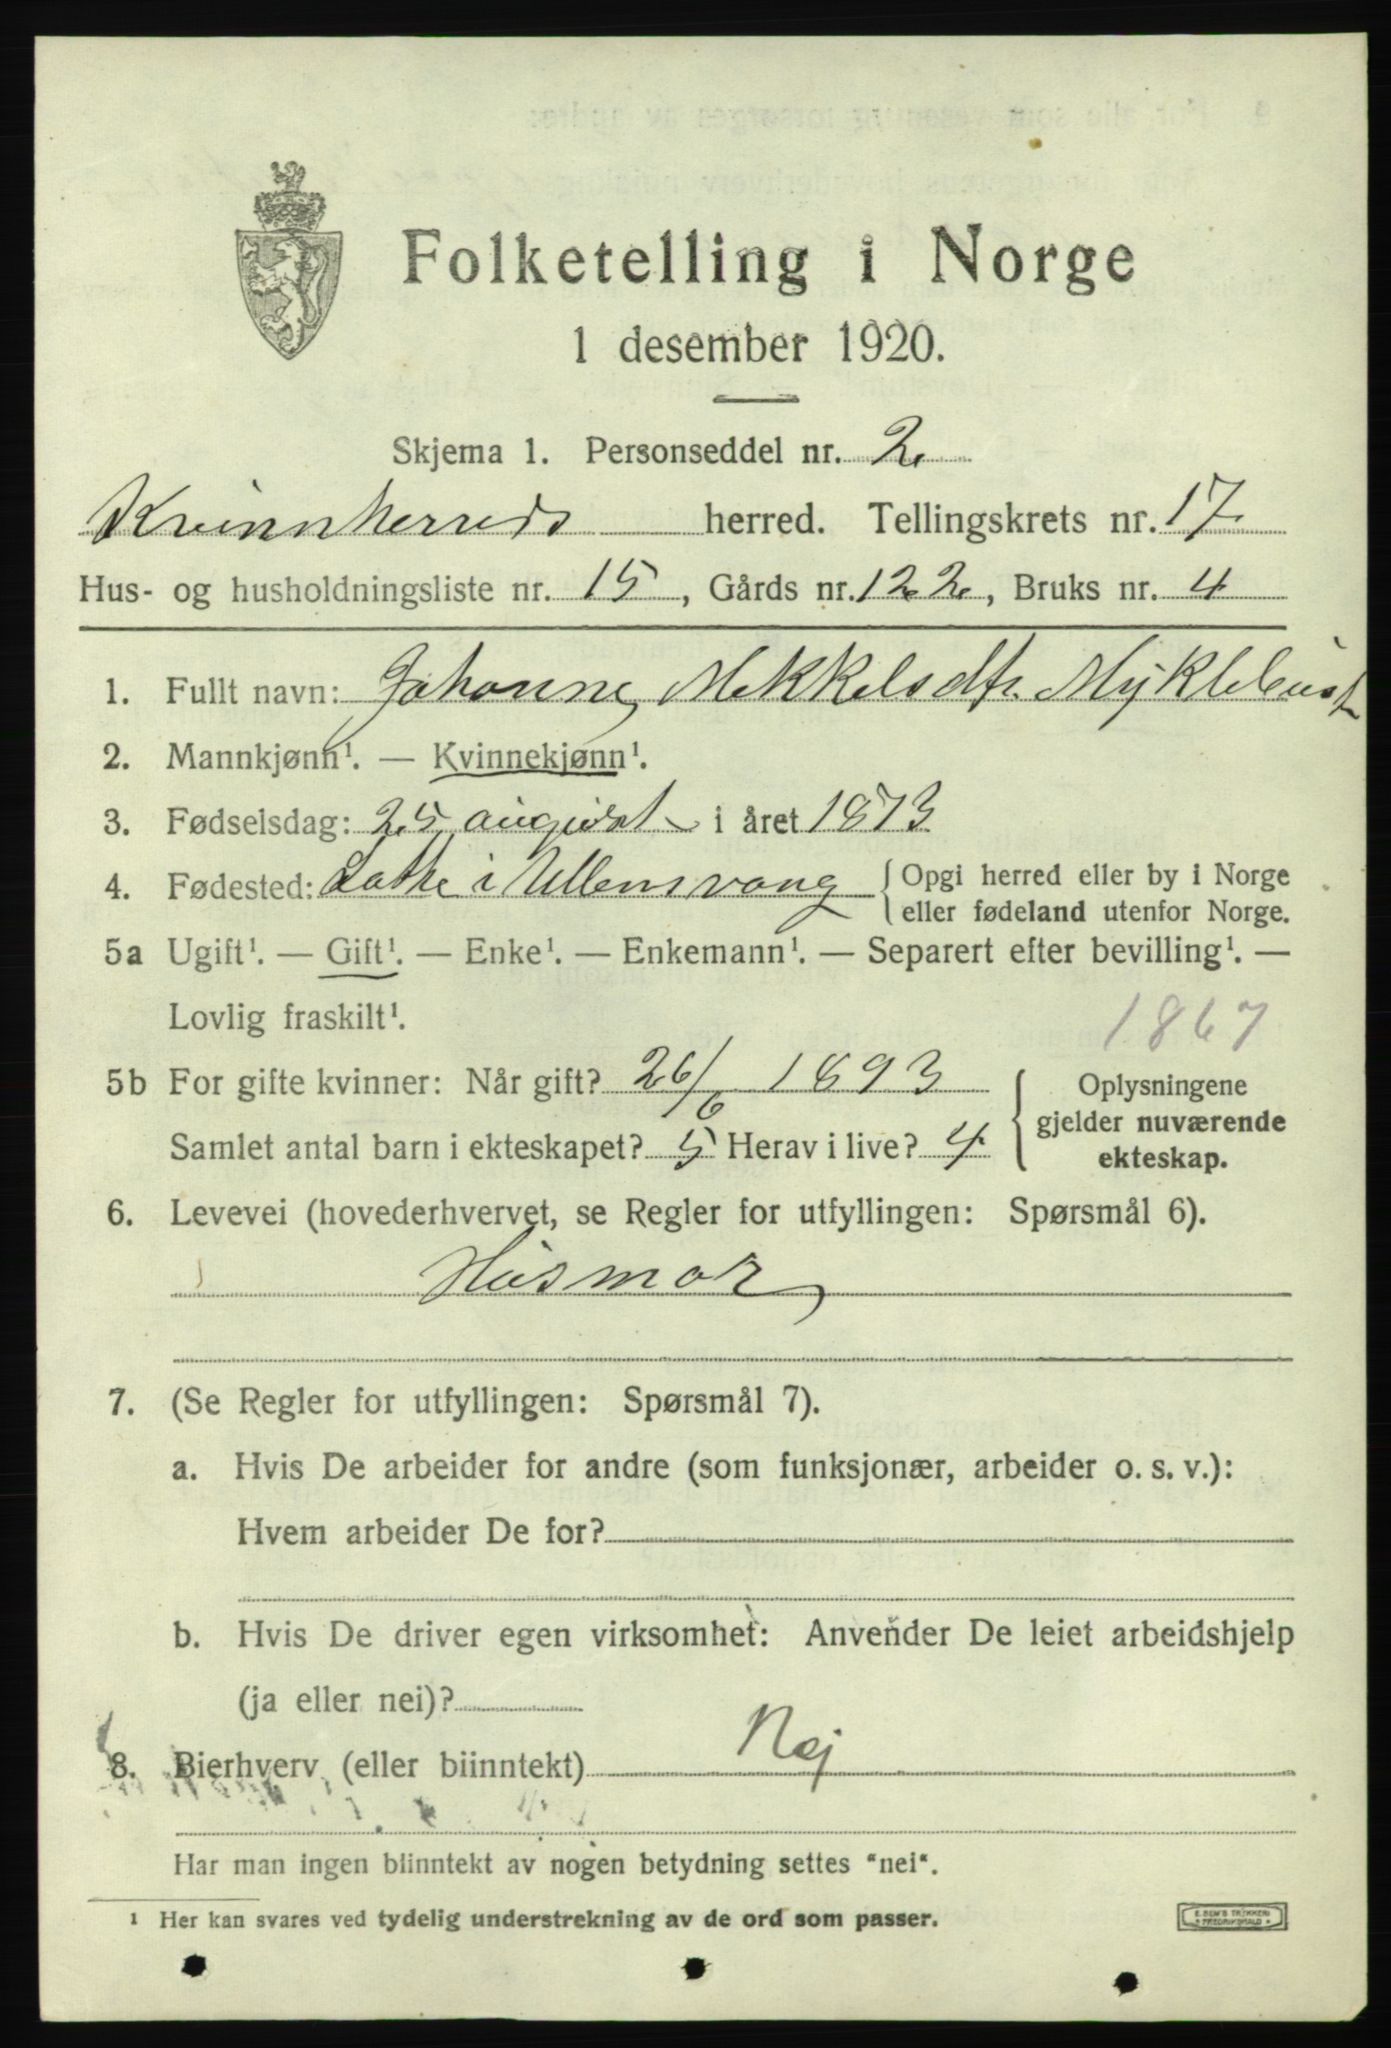 Folketelling i Norge
1 desember 1920.
Skjema 1. Personseddel nr. 2.
Kvinnherreds herred. Tellingskrets nr. 17.
Hus- og husholdningsliste nr. 15, Gårds nr. 122, Bruks nr. 4
1. Fullt navn: Johanne Mekkelsdtr. Myklebust
2. Mannkjønn¹. — Kvinnekjønn¹.
3. Fødselsdag: 25 august i året 1873
4. Fødested: Lothe i Ullensvang { Opgi herred eller by i Norge
eller fødeland utenfor Norge.
5a Ugift¹. — Gift¹. — Enke¹. — Enkemann¹. — Separert efter bevilling¹. —
Lovlig fraskilt¹.
1867
5b For gifte kvinner: Når gift? 26/6 1893 { Oplysningene
gjelder nuværende
Samlet antal barn i ekteskapet? 5 Herav i live? 4
ekteskap.
6. Levevei (hovederhvervet, se Regler for utfyllingen: Spørsmål 6).
Husmor
7. (Se Regler for utfyllingen: Spørsmål 7).
a. Hvis De arbeider for andre (som funksjonær, arbeider o. s. v.):
Hvem arbeider De for?
b. Hvis De driver egen virksomhet: Anvender De leiet arbeidshjelp
(ja eller nei)?
8. Bierhverv (eller biinntekt) Nej
Har man ingen biinntekt av nogen betydning settes "nei".
¹ Her kan svares ved tydelig understrekning av de ord som passer.